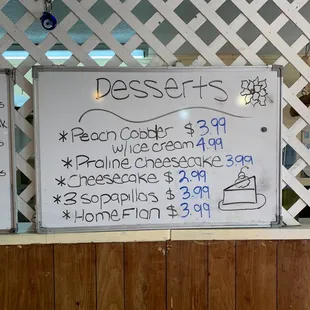 Desserts
*Peach Cobbler $ 3.99
w/ice cream 4.99
*Praline cheesecake 3.99
*Cheesecake $ 2.99
*3 Sopapillas $ 3.99
*Home Flan $ 3.99